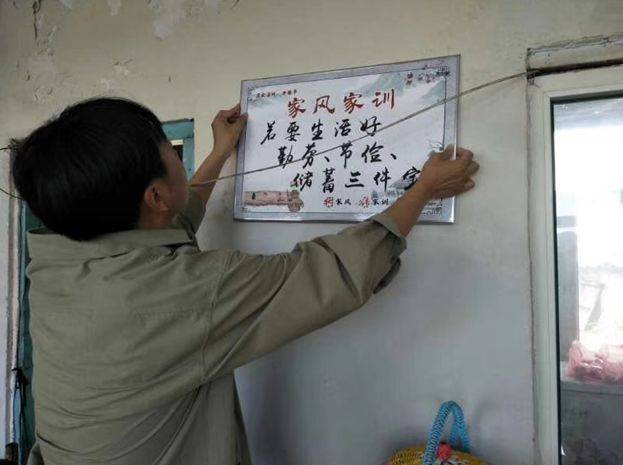 家风家训
若要生活好
勤劳、节俭、
储蓄三件宝
家风 家训